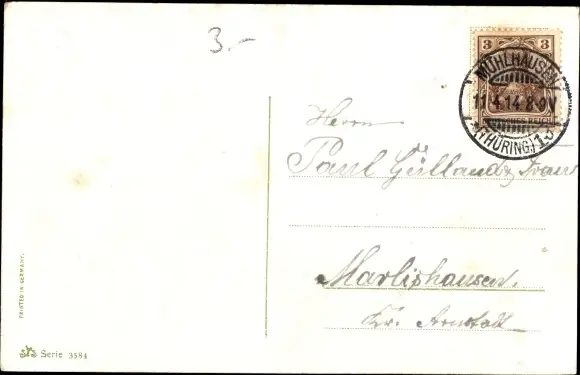 3.-
3 3
MÜHLHAUSEN
11.4.14.8-9V
(THÜRING.) 1
REICH
Herrn
Paul Gülland & Frau
Marlishausen.
Kr. Arnstadt
PRINTED IN GERMANY.
Serie 3584